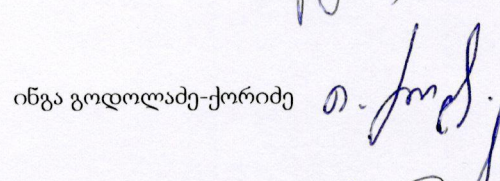 ინგა გოდოლაძე-ქორიძე